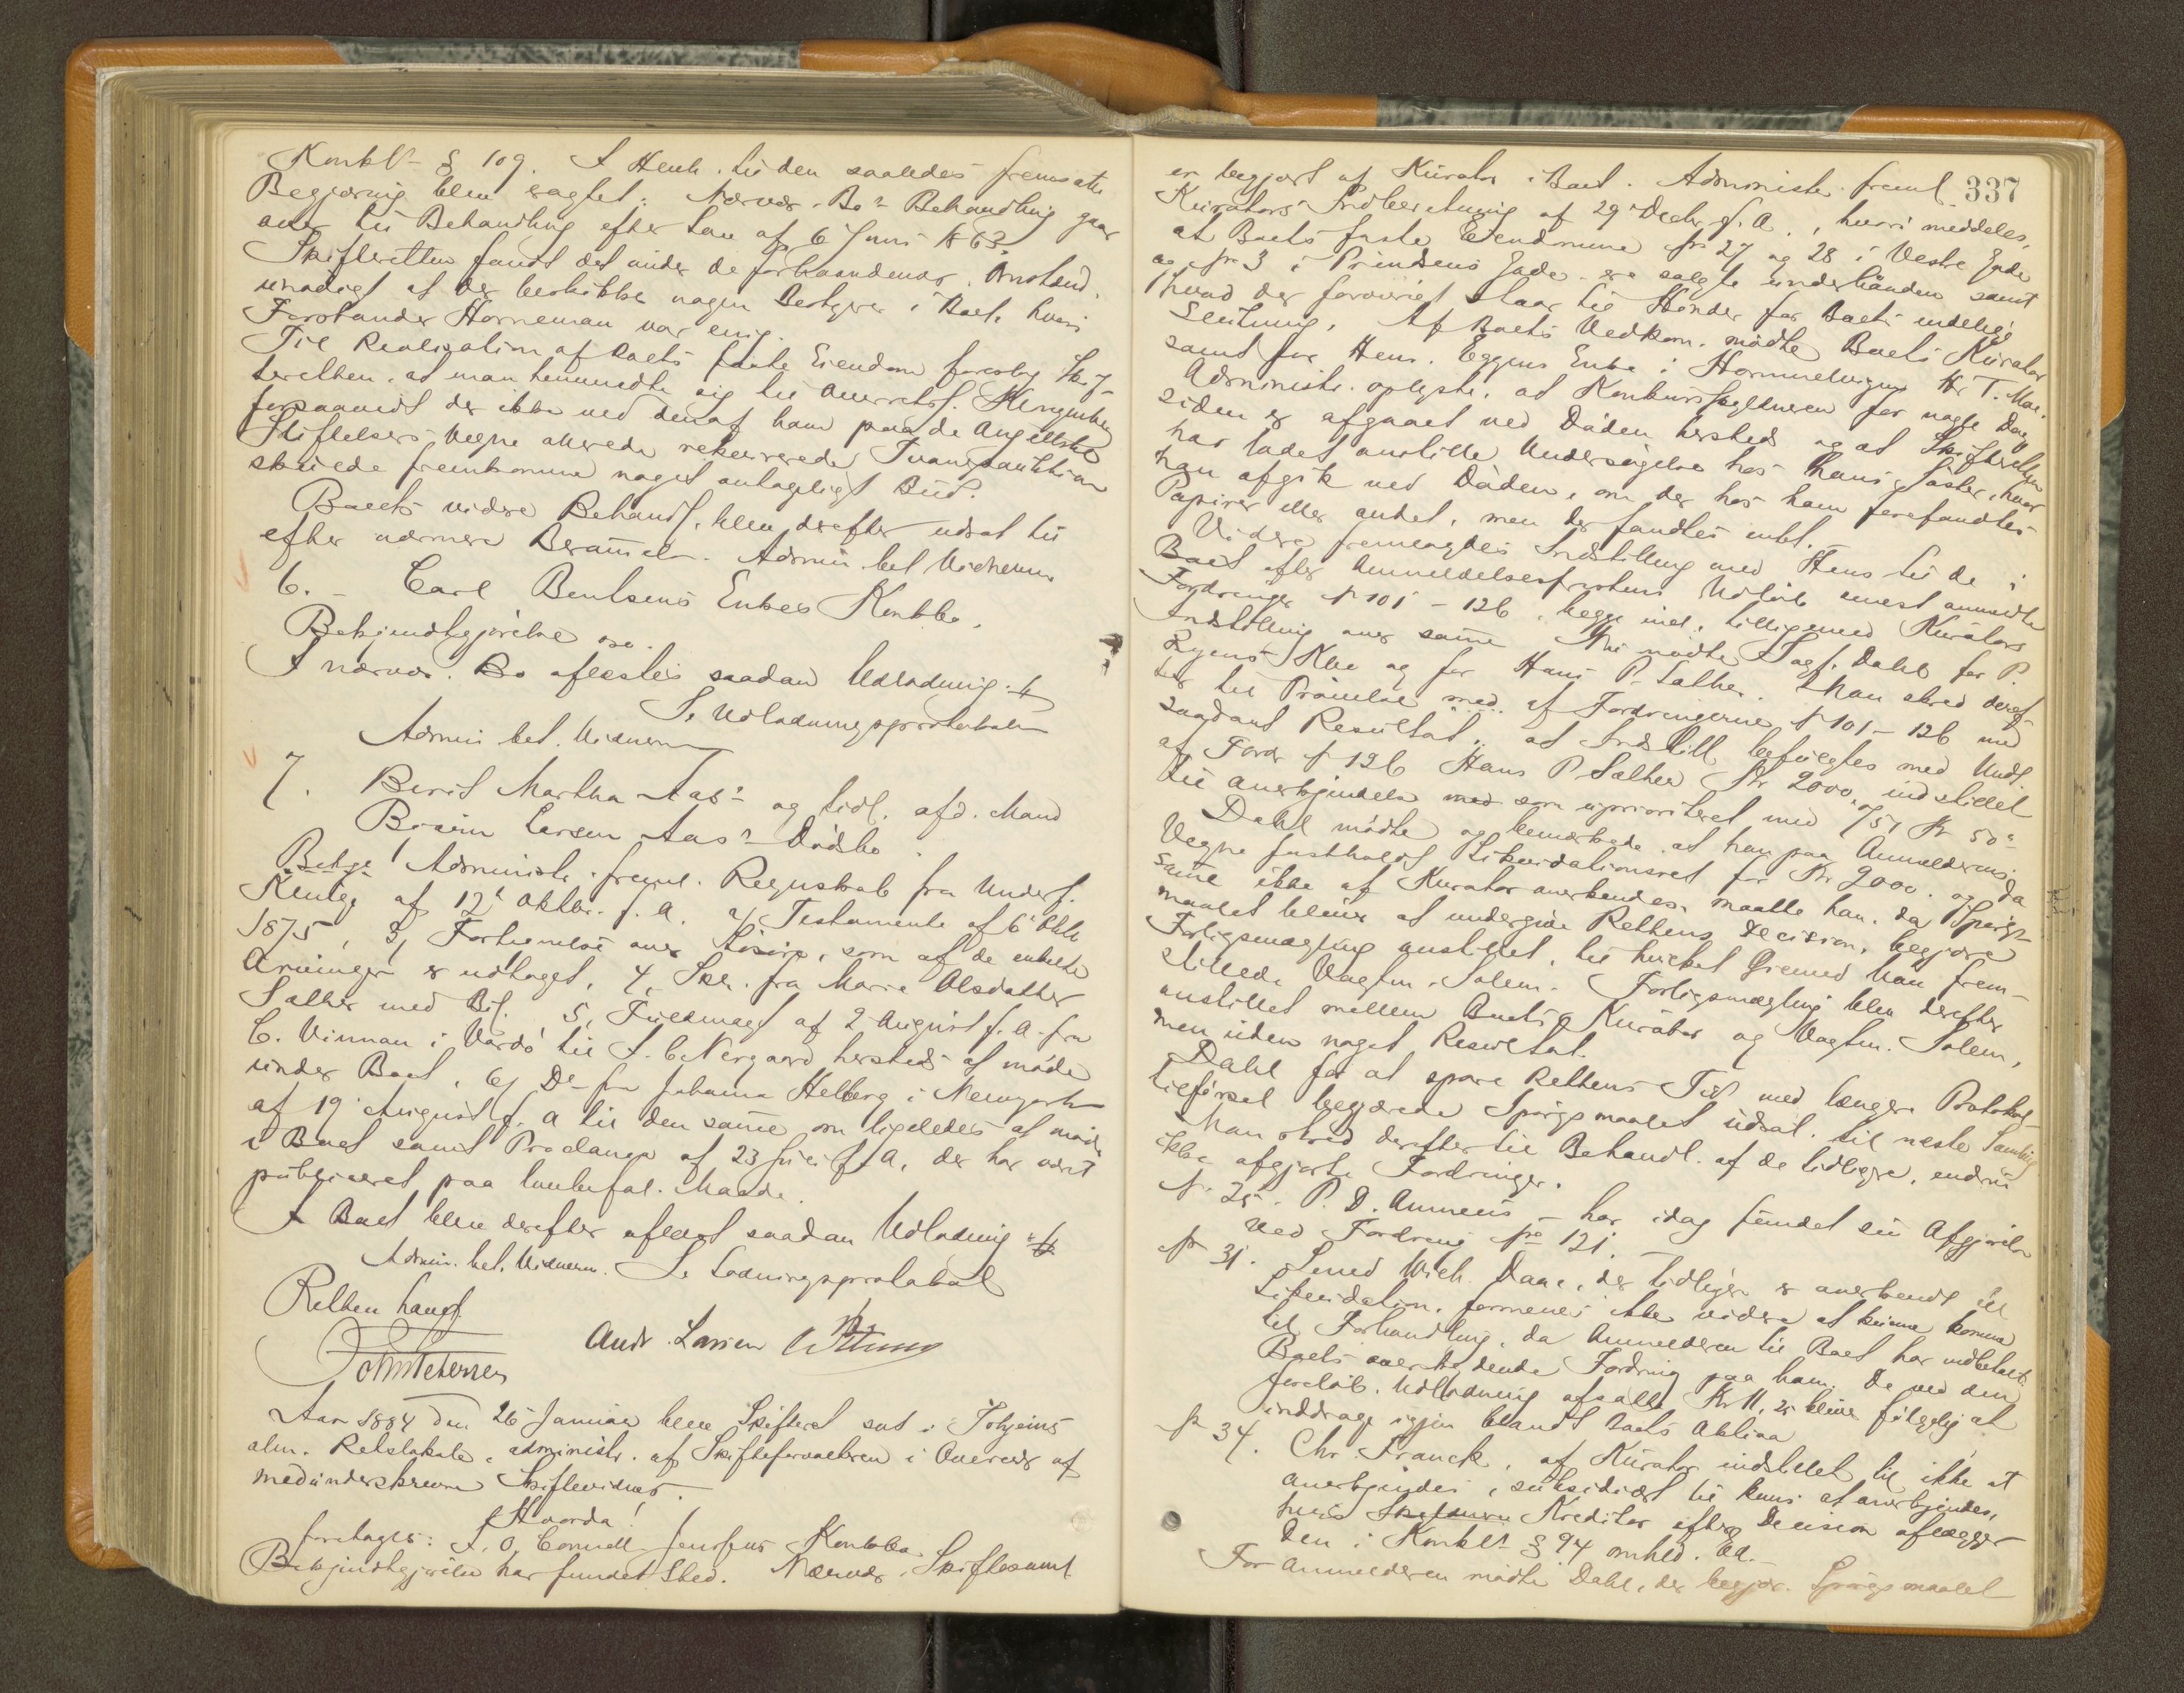 Konkl- § 109. I Henh. til den saaledes fremsatte
Begjæring blev eragtet: Nærvær. Bo's Behandling gaar
over til Behandling efter Lov af 6 Juni 1863.
Skifteretten fandt det under de forhaandenvær. Omstænd.
unødigt at der beskikkes nogen Bestyrer i Boet, hvori
Forstander Horneman var enig.
Til Realisation af Boets faste Eiendom foreslog Skif-
teretten, at man henvendte sig til Overretssf.
forsaavidt der ikke ved den af ham paa de Angellske
Stiftelsers Vegne allerede rekvirerede Tvangsauktion
skulde fremkomme noget antageligt Bud.
Boets videre Behandl. blev derefter udsat til
efter nærmere Berammelse. Admin. bet. Vidnerne
6. - Carl Bentsens Enkes Konkbo.
Bekjendtgjørelse oso.
I nærvær. Bo aflæstes saadan Udlodning #
Se Udlodningsprotokollen
Admin bet. Vidnerne
7. Berit Martha Aas's og tidl. afd. Mand
Larsen Aas's Dødsbo.
Bekge! Administr. freml. Regnskab fra Underf.
af 12te Oktbr. f. A. 2, Testamente af 6 Oktb
1875, 3, Fortegnelse over Løsøre, som af de enkelte
Arvinger er udtaget, 4, Skr. fra Marie Olsdatter
Sather med Bil. 5, Fuldmagt af 2 August f. A. fra
C. Vinnan i Vardø til S. C. Nergaard hersteds at møde
under Boet, 6, Do fra Johanna Helberg i Newyork
af 19 August f. A til den samme om ligeledes at møde
i Boet samt Proclama af 23 Juli f. A, der har været
publiceret paa lovbefal. Maade.
I Boet blev derefter aflæst saadan Udlodning #
Admin. bet. Vidnerne. Se Lodningsprotokol
Retten hævet
Andr. Larsen
Aar 1884 den 26 Januar blev Skifteret sat i Tvhjems
alm. Retslokale, administr. af Skifteforvalteren i Overvær af
medunderskrevne Skiftevidner.
Hvorda!
foretoges: I, O, Cornell Jensens Konkbo.
Bekjendtgjørelse har fundet Sted. Nærvær. Skiftesaml.
337
er begjært af Kurator i Boet. Administr. freml.
Kurators Indberetning af 29 Decbr f. A., hvori meddeles,
at Boets faste Eiendomme No 27 og 28 i Vestre Gade
og No 3 i Prindsens Gade ere solgte underhaanden samt
hvad der forøvrigt staar til Hinder for Boets endelige
Slutning. Af Boets Vedkom. mødte Boets Kurator
samt for Henr. Eggens Enke i Hommelvigen Hr T. Moe.
Administr. oplyste, at Konkursskyldneren for nogle Dage
siden er afgaaet ved Døden hersteds og at Skifteretten
har ladet anstille Undersøgelse hos hans Søster, hvor
han afgik ved Døden, om der hos ham forefandtes
Papirer eller andet, men der fandtes intet.
Videre fremlagdes Indstilling med Hens. til de i
Boet efter Anmeldelsesfristens Udløb senest anmeldte
Fordringer No 101 - 126, begge incl. tilligemed Kurators
Indstilling over samme Nu mødte Sagf. Dahl for P.
Ryens Kbo og for Hans P. Sather. Man skred deref-
ter til Prøvelse med af Fordringerne No 101 - 126 med
saadant Resultat, at Indstill. befulgtes med Undt.
af Fordr No 126 Hans P. Sather Kr 2000, indstillet
til Anerkjendelse med som uprioriteret med 751 Kr 50 ø
Dahl mødte og bemærkede at han paa Anmelderens
Vegne fastholdt Likvidationsret for Kr 2000. og da
samme ikke af Kurator anerkendes, maatte han, da Spørgs-
maalet bliver at undergive Rettens Decision, begjære
Forligsmægling anstillet, til hvilket Øiemed han frem-
stillede Vagtm. Solem. Forligsmægling blev derefter
anstillet mellem Boets Kurator og Vagtm. Solem,
men uden noget Resultat.
Dahl for at spare Rettens Tid med længere Protokol-
tilførsel begjærede Spørgsmaalet udsat til næste Samling
Man skred derefter til Behandl. af de tidligere, endnu
ikke afgjorte Fordringer.
No 25. P. D. Ameens - har idag fundet sin Afgjørelse
ved Fordring No 121.
No 31. Lened Wich. Daae, der tidligere er anerkendt til
Likvidation, formenes ikke videre at kunne komme
til Forhandling, da Anmelderen til Boet har indbetalt
Boets overskydende Fordring paa ham. De ved den
foreløb. Udlodning afsatte Kr 11,25 bliver følgelig at
inddrage igjen blandt Boets Aktiva
No 34. Chr. Franck, af Kurator indstillet til ikke at
anerkjendes, subsidiært til kuns at anerkjendes,
hvis Skyldneren Kreditor efter Decision aflægger
den i Konkl's § 94 omhld. Ed. -
For Anmelderen mødte Dahl, der begjær. Spørgsmaalet